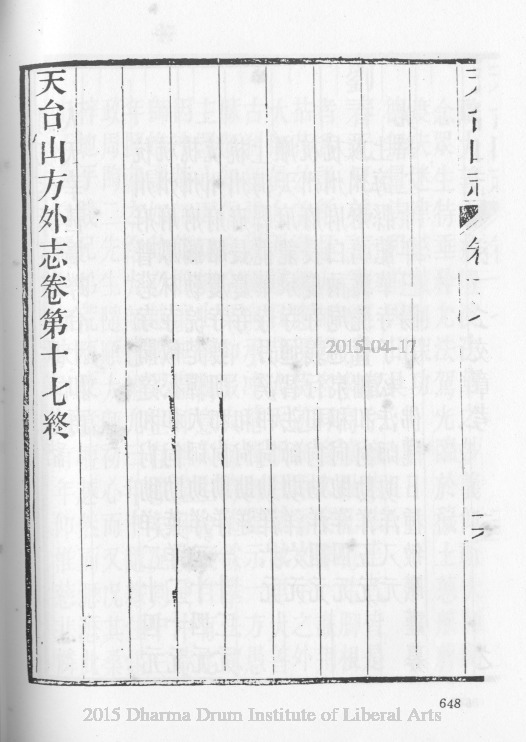 天台山方外志卷第十七終
2015-04-17
648
2015 Dharma Drum Institute of Liberal Arts